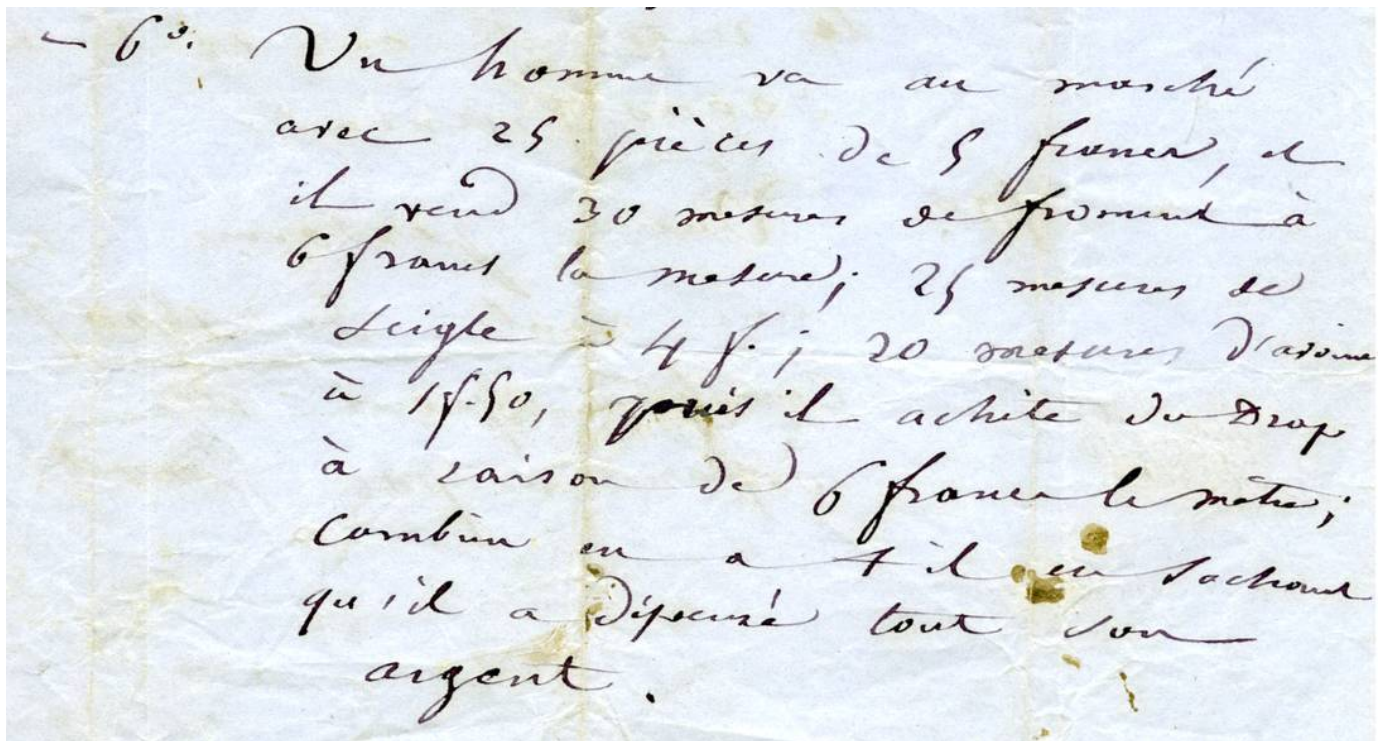 - 6º. Un homme va au marché
avec 25 pièces de 5 francs, et
il vend 30 mesures de froment à
6 francs la mesure; 25 mesures de
seigle à 4 f.; 20 mesures d'avoine
à 1f.50, puis il achète du Drap
à raison de 6 francs le mètre;
combien en a t il eu sachant
qu'il a dépensé tout son
argent.